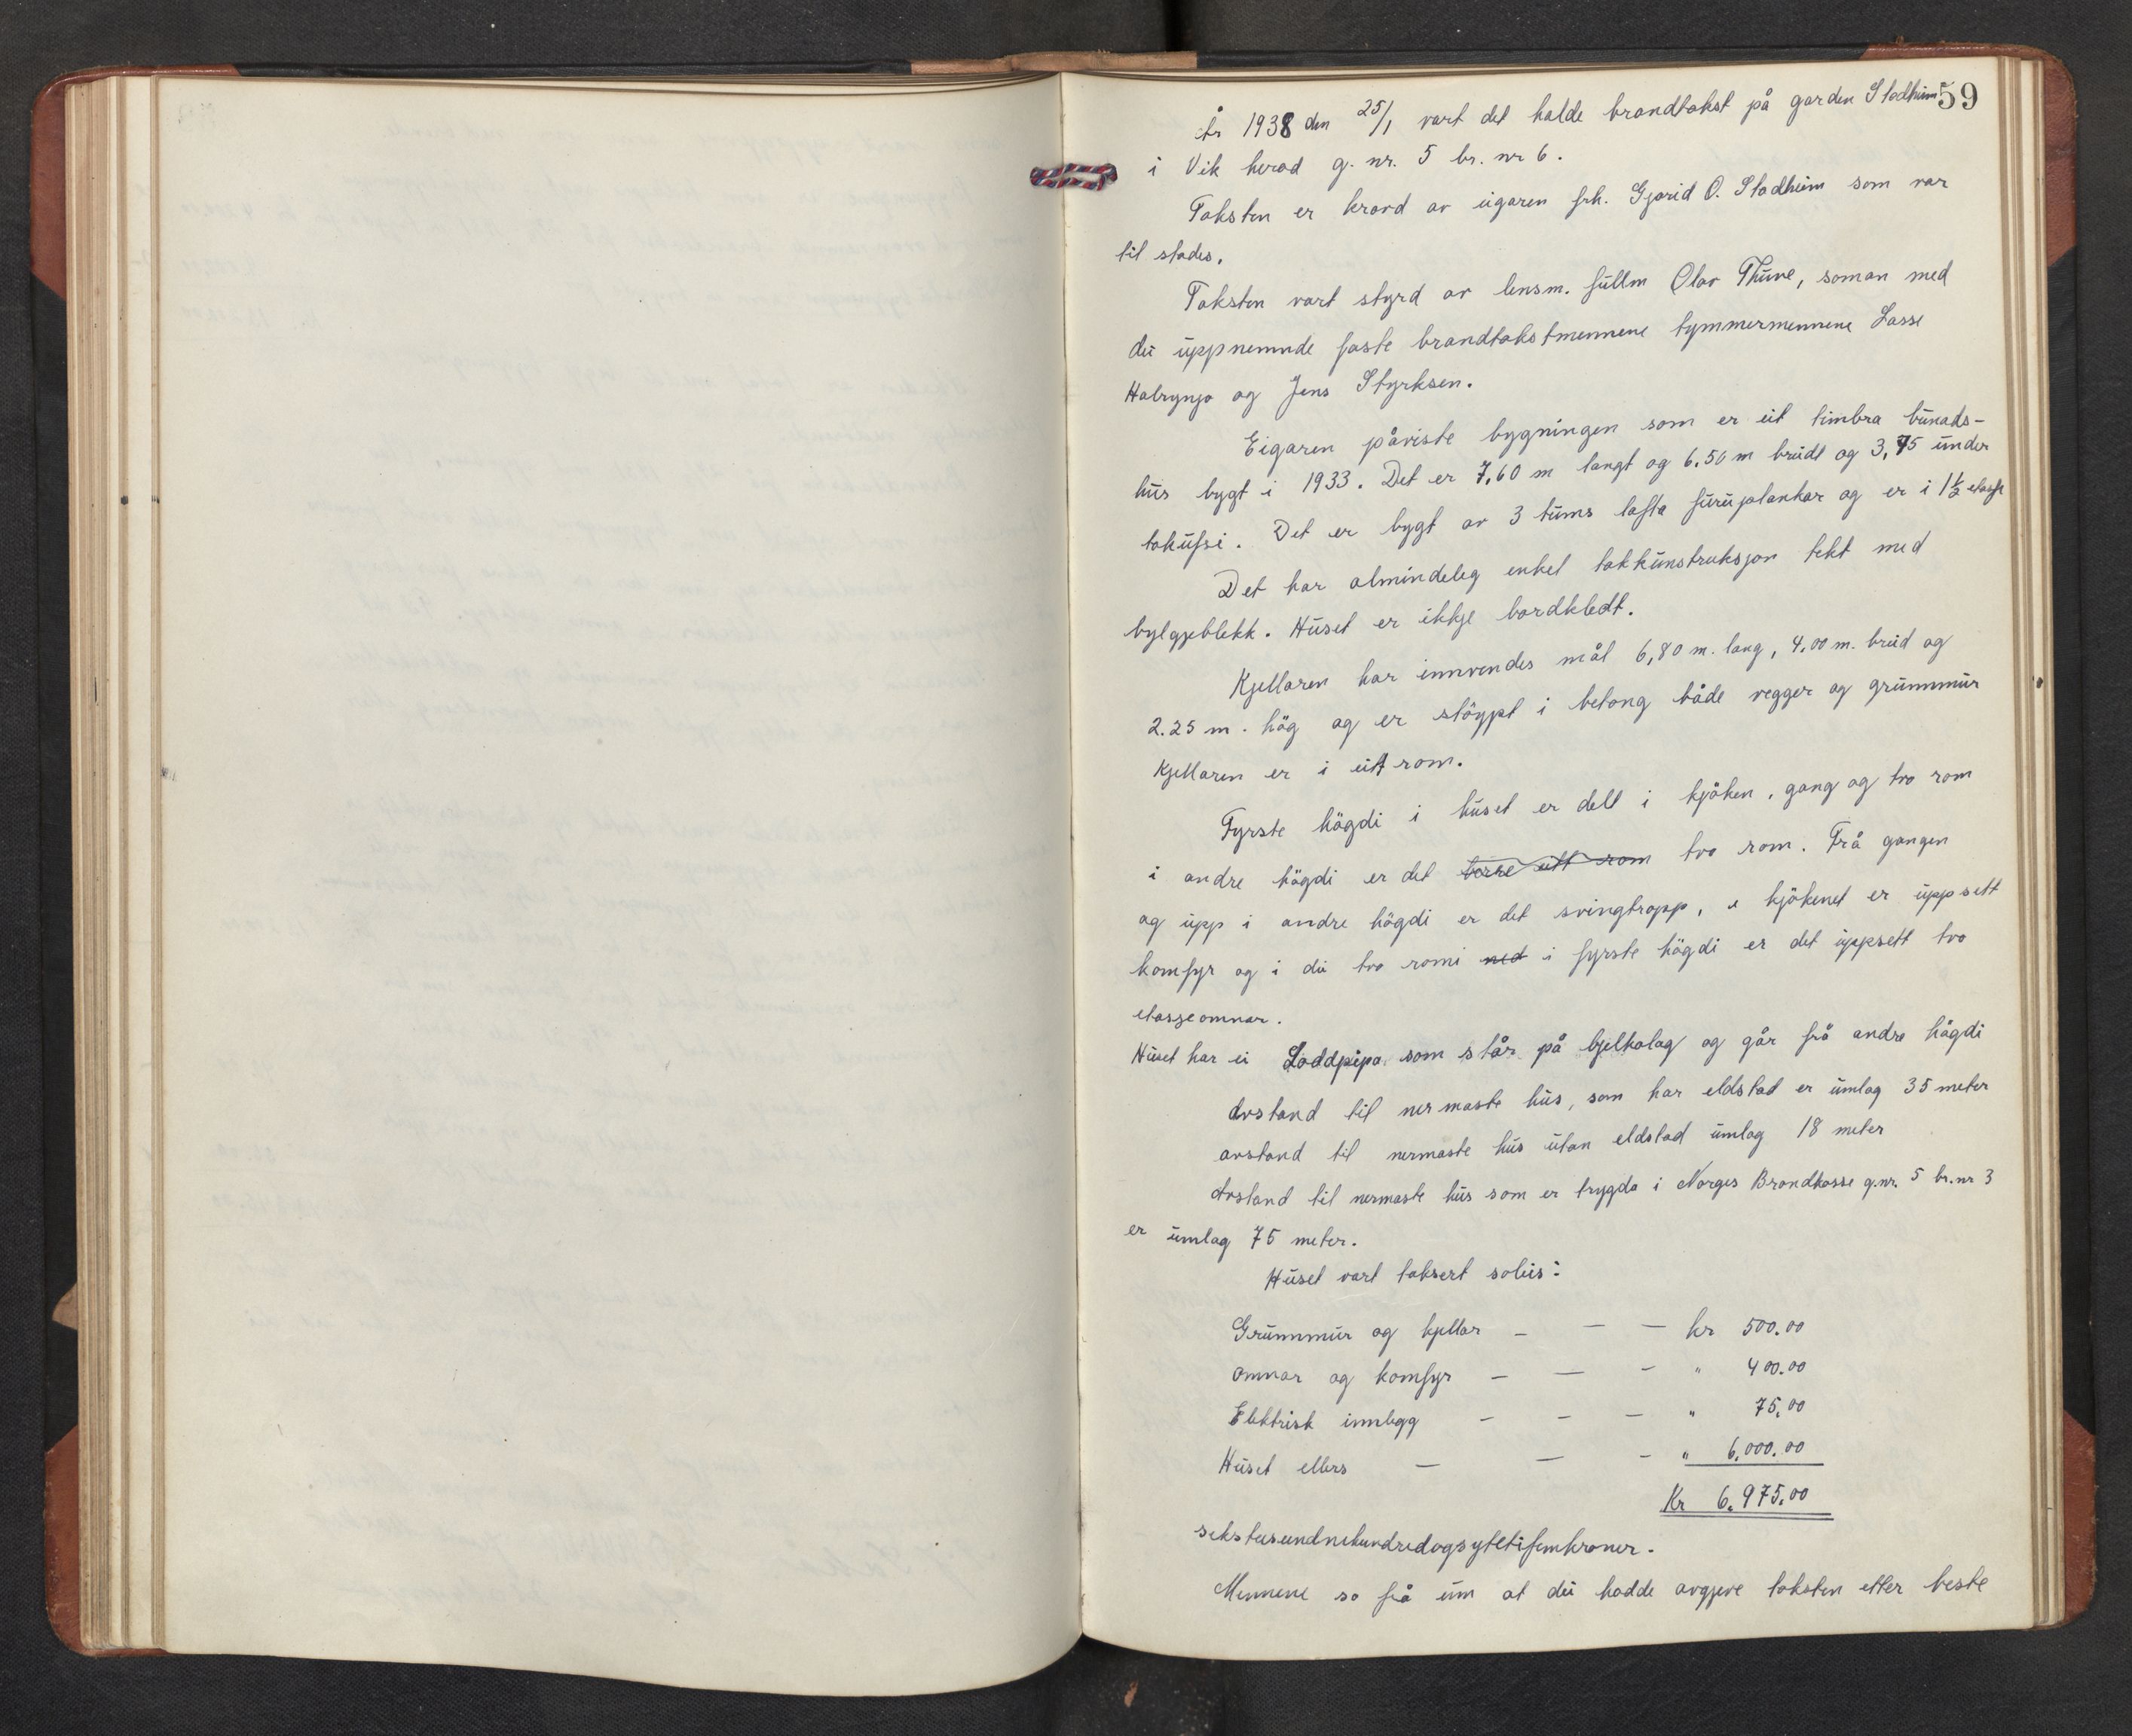 59
År 1938 den 25/1 vart det halde brandtakst på garden Stadheim
i Vik herad g. nr. 5 br. nr 6.
Taksten er kravd av eigaren frk. Gjørid O. Stadheim som var
til stades.
Taksten vart styrd av lensm. fullm Olav Thune, soman med
dei uppnemnde faste brandtakstmennene tymmermennene Lasse
Halrynjo og Jens Styrksen.
Eigaren påviste bygningen som er eit timbra bunads-
hus bygt i 1933. Det er 7,60 m langt og 6.50 m breidt og 3,75 under
takufsi. Det er bygt av 3 tums lafta furuplankar og er i 1½ etasje
Det har almindeleg enkel takkunstruksjon tekt med
bylgjeblekk. Huset er ikkje bordkledt.
Kjellaren har innvendes mål 6,80 m. lang, 4.00 m. breid og
2.25 m. høg og er støypt i betong både vegger og grunnmur
Kjellaren er i eitt rom.
Fyrste høgdi i huset er delt i kjøken, gang og tvo rom
i andre høgdi er det berre eitt rom tvo rom. Frå gangen
og upp i andre høgdi er det svingtropp, i kjøkenet er uppsett
komfyr og i dei tvo romi ned i fyrste høgdi er det uppsett tvo
etasjeomnar.
Huset har ei Loddpipa som står på bjelkalag og går frå andre høgdi
Avstand til nermaste hus, som har eldstad er umlag 35 meter
avstand til nermaste hus utan eldstad umlag 18 meter
Avstand til nermaste hus som er trygda i Norges Brandkasse g.nr. 5 br.nr 3
er umlag 75 meter.
Huset vart taksert soleis:
Grunnmur og kjellar - — — kr 500.00
Omnar og komfyr - — - " 400.00
Elektrisk innlegg - - — " 75,00
Huset ellers — — - " 6,000.00
Kr 6.975,00
sekstusundnihundredogsyttifemkroner.
Mennene sa frå um at dei hadde avgjeve taksten etter beste